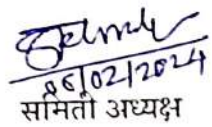 06/02/2024
समिती अध्यक्ष